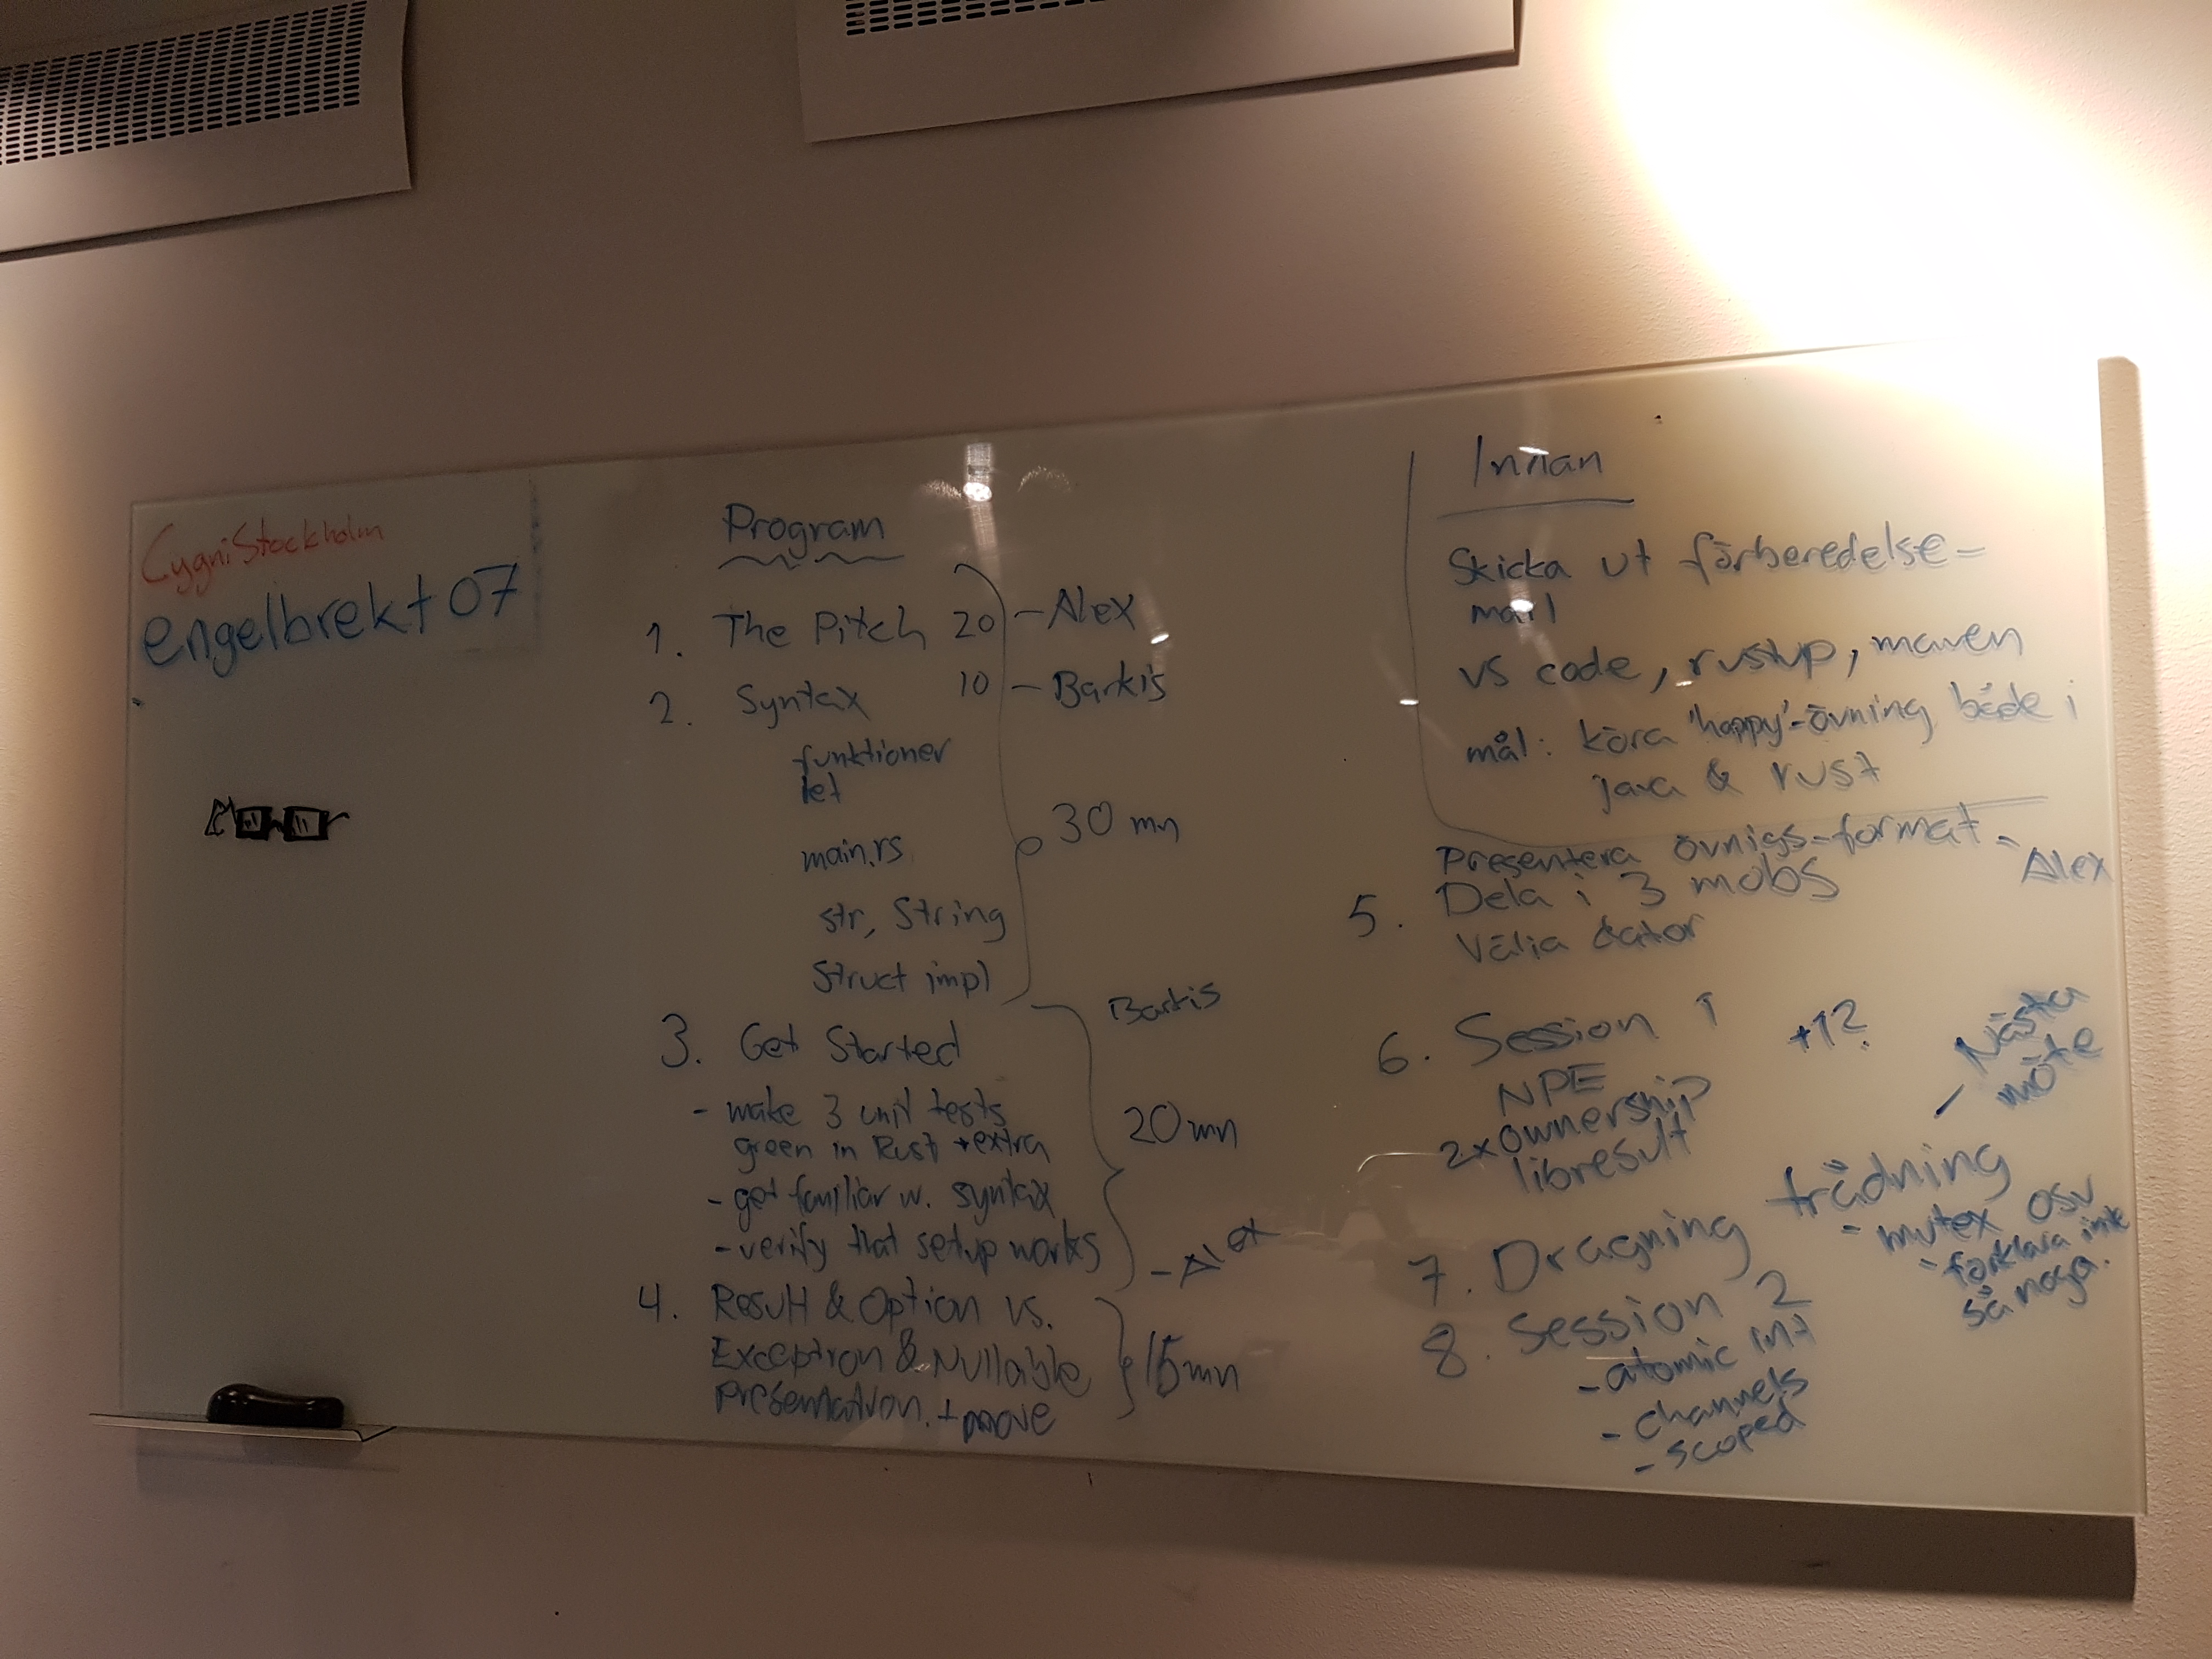 CygniStockholm
engelbrekt07
Program
1. The Pitch 20 - Alex
2. Syntax 10 - Barkis
funktioner
let
main.rs
str, String
Struct impl
30 mn
3. Get Started
Barkis
- make 3 unit tests
green in Rust + extra
- get familiar w. syntax
- verify that setup works
20 mn
- Alex
4. Result & Option vs.
Exception & Nullable
Presentation. + move
15 mn
Innan
Skicka ut förberedelse-
mail
vs code, rustup, maven
mål: köra 'happy'-övning både i
java & rust
Presentera övnigs-format - Alex
5. Dela i 3 mobs
Välja dator
6. Session 1 +1?
NPE
2x ownership
libresult
- Nästa
möte
7. Dragning trådning
- mutex osv
- förklara inte
så noga.
8. Session 2
- atomic int
- channels
- scoped